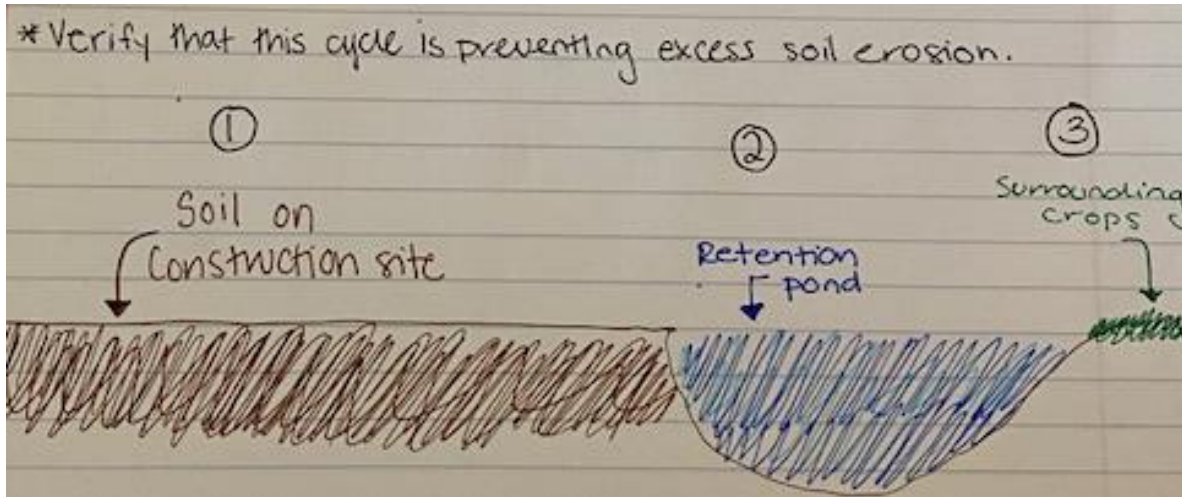 *Verify that this cycle is preventing excess soil erosion.
①
②
③
Soil on
Construction site
Retention
pond
Surrounding
crops